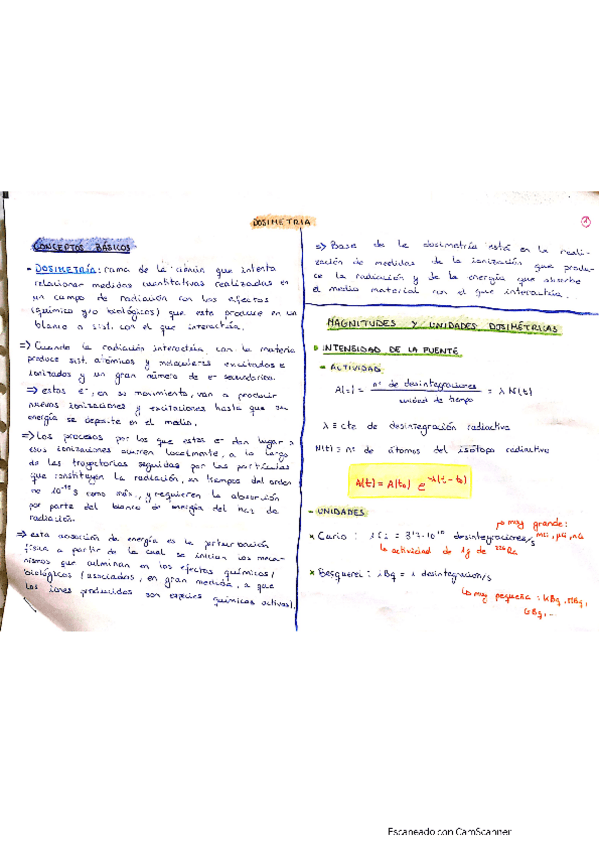 DOSIMETRIA
1
CONCEPTOS BÁSICOS
- DOSIMETRÍA: rama de la ciencia que intenta
relacionar medidas cuantitativas realizadas en
un campo de radiación con los efectos
(químico y/o biológicos) que este produce en un
blanco o sist. con el que interactúa.
=> Cuando la radiación interactúa con la materia
produce sist. atómicos y moleculares excitados e
ionizados y un gran número de e- secundarios.
=> estos e-, en su movimiento, van a producir
nuevas ionizaciones y excitaciones hasta que su
energía se deposite en el medio.
=> Los procesos por los que estos e- dan lugar a
esas ionizaciones ocurren localmente, a lo largo
de las trayectorias seguidas por las partículas
que constituyen la radiación, en tiempos del orden
como máx., y requieren la absorción
por parte del blanco de energía del haz de
radiación.
=> esta absorción de energía es la perturbación
física a partir de la cual se inician los meca-
nismos que culminan en los efectos químicos/
biológicos (asociados, en gran medida, a que
los iones producidos son especies químicas activas).
=> Base de la dosimetría está en la reali-
zación de medidas de la ionización que produ-
ce la radiación y de la energía que absorbe
el medio material con el que interactúa.
MAGNITUDES Y UNIDADES DOSIMÉTRICAS
INTENSIDAD DE LA FUENTE
- ACTIVIDAD
A(t) = nº de desintegraciones / unidad de tiempo = λ N(t)
λ ≡ cte de desintegración radiactiva
N(t) ≡ nº de átomos del isótopo radiactivo
A(t) = A(t₀) e^-λ(t - t₀)
- UNIDADES
↱ muy grande:
mCi, μCi, nCi
× Curio: 1 Ci = 3'7·10¹⁰ desintegraciones/s
la actividad de 1g de ²²⁶Ra
× Becquerel: 1Bq = 1 desintegracion/s
↳ muy pequeña: kBq, MBq,
GBq, ...
Escaneado con CamScanner